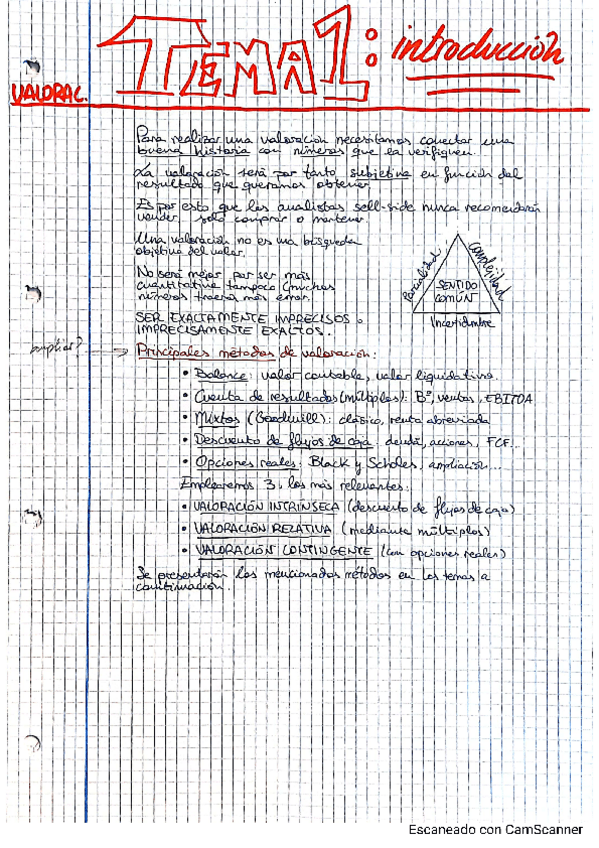 TEMA 1: introducción
VALORAC.
Para realizar una valoración necesitamos conectar una
buena historia con números que la verifiquen.
La valoración será por tanto subjetiva en función del
resultado que queramos obtener.
Es por esto que los analistas sell-side nunca recomendarán
vender, solo comprar o mantener.
Una valoración no es una búsqueda
objetiva del valor.
No será mejor por ser más
cuantitativa tampoco (muchos
números traerá más error.
SER EXACTAMENTE IMPRECISOS o
IMPRECISAMENTE EXACTOS.
Parcialidad
Complejidad
SENTIDO
COMÚN
Incertidumbre
¿ampliar? → Principales métodos de valoración:
• Balance: valor contable, valor liquidativo.
• Cuenta de resultados (múltiplos): Bº, ventas, EBITDA
• Mixtos (Goodwill): clásico, renta abreviada
• Descuento de flujos de caja: deuda, acciones, FCF...
• Opciones reales: Black y Scholes, ampliación...
Emplearemos 3, los más relevantes:
• VALORACIÓN INTRÍNSECA (descuento de flujos de caja)
• VALORACIÓN RELATIVA (mediante múltiplos)
• VALORACIÓN CONTINGENTE (con opciones reales)
Se presentarán los mencionados métodos en los temas a
continuación.
Escaneado con CamScanner